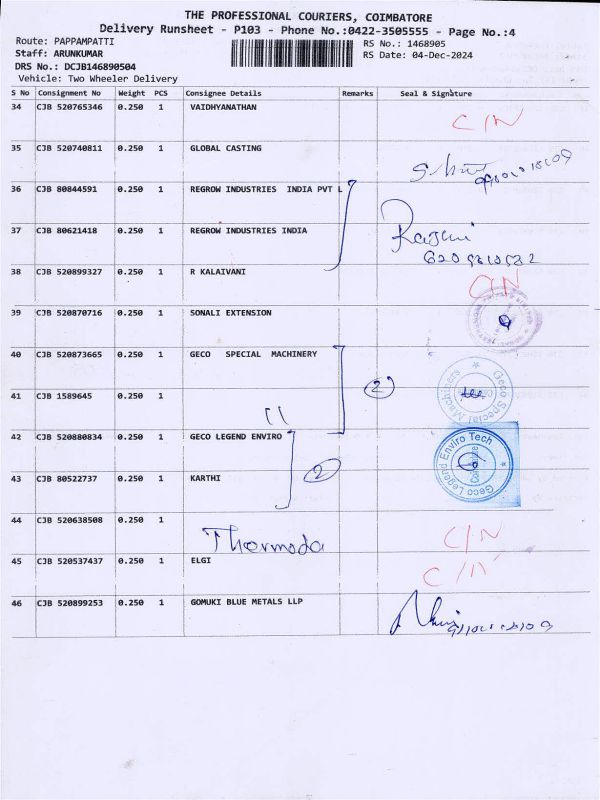 THE PROFESSIONAL COURIERS, COIMBATORE
Delivery Runsheet - P103 - Phone No.:0422-3505555 - Page No.:4
Route: PAPPAMPATTI
Staff: ARUNKUMAR
DRS No.: DCJB146890504
Vehicle: Two Wheeler Delivery
RS No.: 1468905
RS Date: 04-Dec-2024
S No Consignment No Weight PCS Consignee Details Remarks Seal & Signature
34 CJB 520765346 0.250 1 VAIDHYANATHAN C/N
35 CJB 520740811 0.250 1 GLOBAL CASTING
36 CJB 80844591 0.250 1 REGROW INDUSTRIES INDIA PVT L
37 CJB 80621418 0.250 1 REGROW INDUSTRIES INDIA
38 CJB 520899327 0.250 1 R KALAIVANI C/N
39 CJB 520870716 0.250 1 SONALI EXTENSION
40 CJB 520873665 0.250 1 GECO SPECIAL MACHINERY 2
Geco Special Machiners
41 CJB 1589645 0.250 1 11
42 CJB 520880834 0.250 1 GECO LEGEND ENVIRO 2
Geco Legend Enviro Tech
43 CJB 80522737 0.250 1 KARTHI
44 CJB 520638508 0.250 1 Thermoda C/N
45 CJB 520537437 0.250 1 ELGI C/N
46 CJB 520899253 0.250 1 GOMUKI BLUE METALS LLP